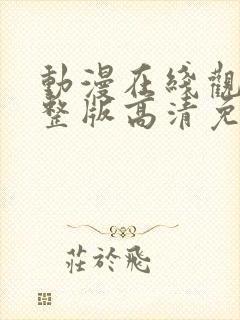 動漫在綫觀
整版高清免
莊於飛